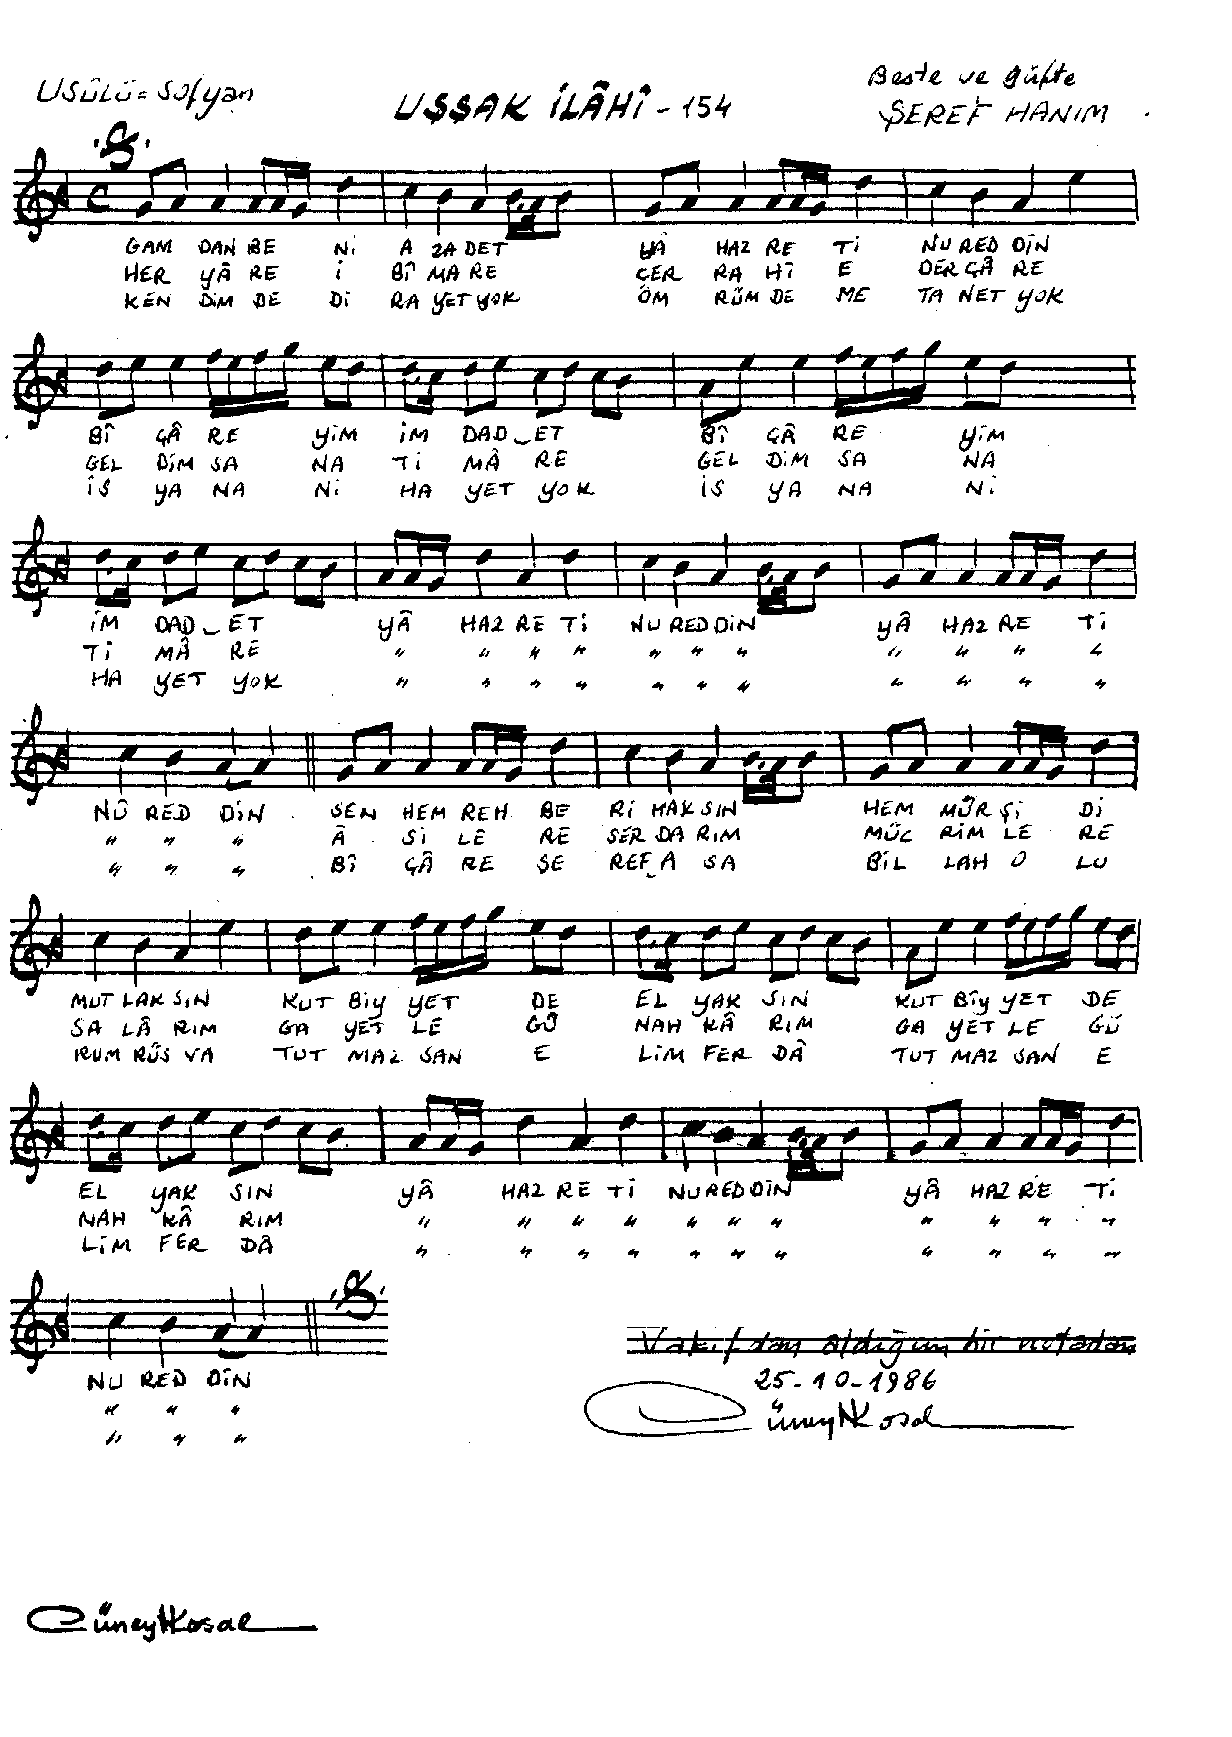 USÛLÜ= Sofyan
UŞŞAK İLÂHÎ - 154
Beste ve güfte
ŞEREF HANIM
GAM DAN BE Nİ A ZA DET YÂ HAZ RE Tİ NU RED DİN
HER YÂ RE İ BÎ MA RE CER RA HÎ E DER GÂ RE
KEN DİM DE Dİ RA YET YOK ÖM RÜM DE ME TA NET YOK
BÎ ÇÂ RE YİM İM DAD_ET BÎ ÇÂ RE YİM
GEL DİM SA NA Tİ MÂ RE GEL DİM SA NA
İS YA NA Nİ HA YET YOK İS YA NA Nİ
İM DAD_ET YÂ HAZ RE Tİ NU RED DİN YÂ HAZ RE Tİ
Tİ MÂ RE " " " " " " " " " " "
HA YET YOK " " " " " " " " " " "
NÛ RED DİN SEN HEM REH BE Rİ HAK SIN HEM MÜR Şİ Dİ
" " " Â Sİ LE RE SER DA RIM MÜC RİM LE RE
" " " BÎ ÇÂ RE ŞE REF_A SA BİL LAH O LU
MUT LAK SIN KUT BİY YET DE EL YAK SIN KUT BİY YET DE
SA LÂ RIM GA YET LE GÜ NAH KÂ RIM GA YET LE GÜ
RUM RÜS VA TUT MAZ SAN E LİM FER DÂ TUT MAZ SAN E
EL YAK SIN YÂ HAZ RE Tİ NU RED DİN YÂ HAZ RE Tİ
NAH KÂ RIM " " " " " " " " " " "
LİM FER DÂ " " " " " " " " " " "
NU RED DİN
" " "
" " "
Vakıf dan aldığım bir notadan
25-10-1986
Cüneyt Kosal
Cüneyt Kosal